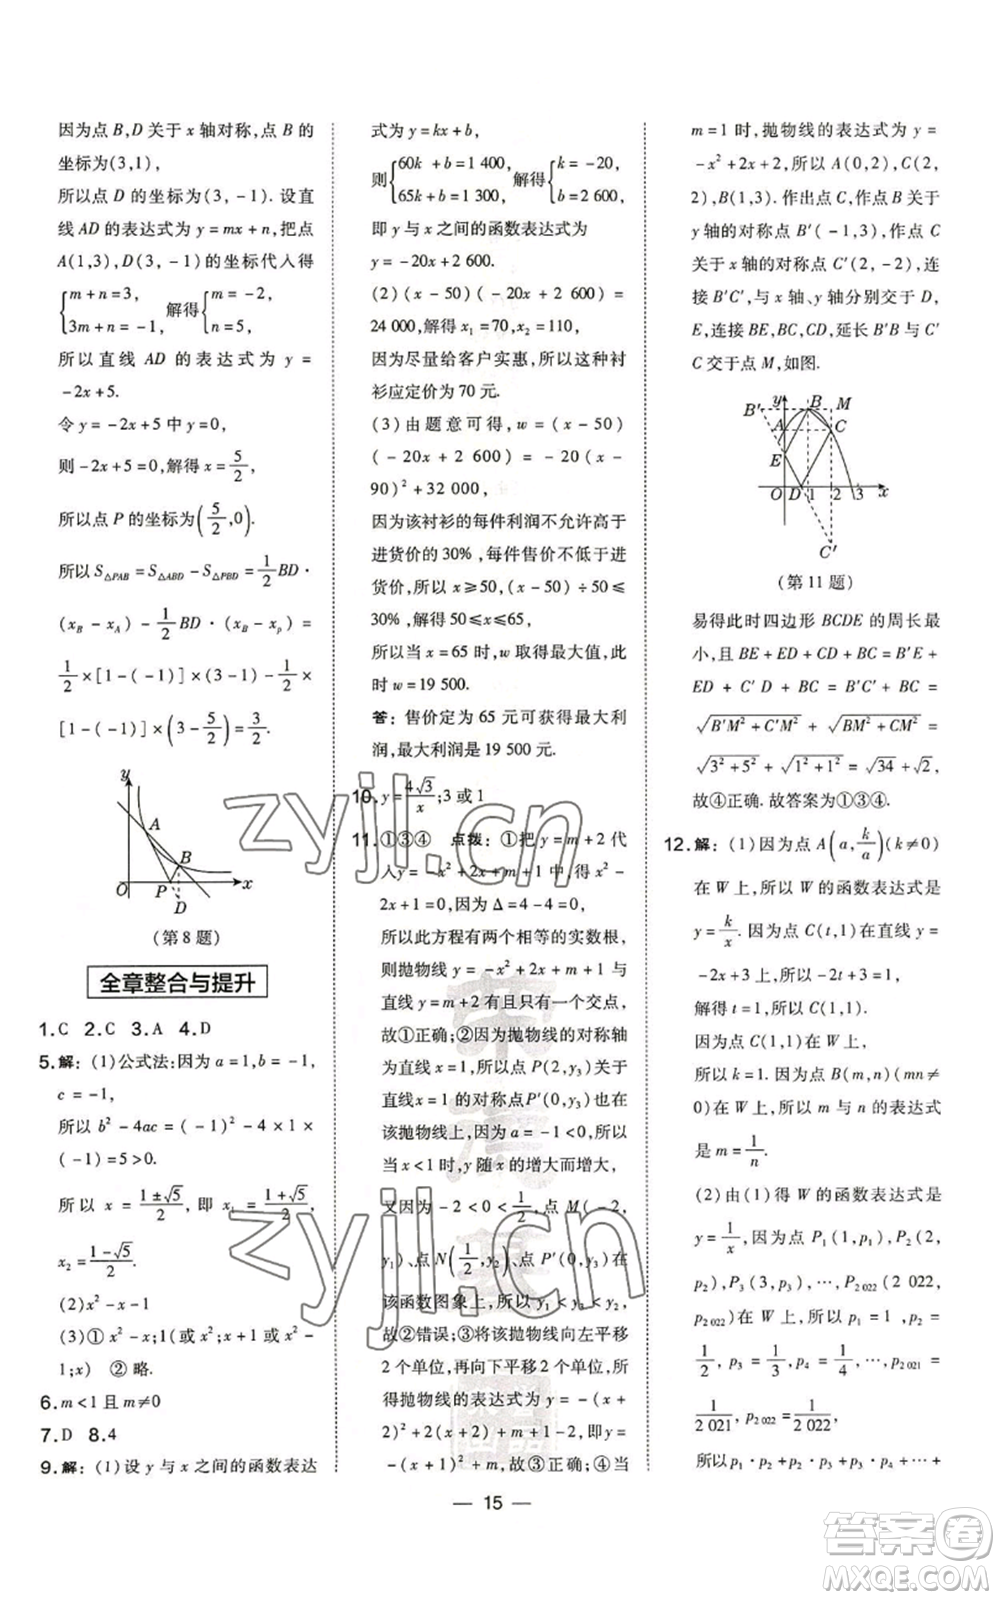 因为点 B,D 关于 x 轴对称,点 B 的
坐标为(3,1),
所以点 D 的坐标为(3,-1).设直
线 AD 的表达式为 y=mx+n,把点
A(1,3),D(3,-1)的坐标代入得
{m+n=3, 3m+n=-1, 解得 {m=-2, n=5,
所以直线 AD 的表达式为 y=
-2x+5.
令 y=-2x+5 中 y=0,
则 -2x+5=0,解得 x=5/2,
所以点 P 的坐标为(5/2,0).
所以 S△PAB=S△ABD-S△PBD=1/2 BD·
(x_B-x_A)-1/2 BD·(x_B-x_p)=
1/2×[1-(-1)]×(3-1)-1/2×
[1-(-1)]×(3-5/2)=3/2.
y
A
B
O
P
x
D
(第 8 题)
全章整合与提升
1.C 2.C 3.A 4.D
5.解:(1)公式法:因为 a=1,b=-1,
c=-1,
所以 b²-4ac=(-1)²-4×1×
(-1)=5>0.
所以 x=(1±√5)/2,即 x₁=(1+√5)/2,
x₂=(1-√5)/2.
(2)x²-x-1
(3)① x²-x;1(或 x²;x+1 或 x²-
1;x) ②略.
6.m<1 且 m≠0
7.D 8.4
9.解:(1)设 y 与 x 之间的函数表达
式为 y=kx+b,
则{60k+b=1 400, 65k+b=1 300, 解得{k=-20, b=2 600,
即 y 与 x 之间的函数表达式为
y=-20x+2 600.
(2)(x-50)(-20x+2 600)=
24 000,解得 x₁=70,x₂=110,
因为尽量给客户实惠,所以这种衬
衫应定价为 70 元.
(3)由题意可得,w=(x-50)
(-20x+2 600)=-20(x-
90)²+32 000,
因为该衬衫的每件利润不允许高于
进货价的 30%,每件售价不低于进
货价,所以 x≥50,(x-50)÷50≤
30%,解得 50≤x≤65,
所以当 x=65 时,w 取得最大值,此
时 w=19 500.
答:售价定为 65 元可获得最大利
润,最大利润是 19 500 元.
10.y=4√3/x;3 或 1
11.①③④ 点拨:①把 y=m+2 代
入 y=-x²+2x+m+1 中,得 x²-
2x+1=0,因为 Δ=4-4=0,
所以此方程有两个相等的实数根,
则抛物线 y=-x²+2x+m+1 与
直线 y=m+2 有且只有一个交点,
故①正确;②因为抛物线的对称轴
为直线 x=1,所以点 P(2,y₃)关于
直线x=1 的对称点P′(0,y₃)也在
该抛物线上,因为 a=-1<0,所以
当 x<1 时,y 随 x 的增大而增大,
又因为 -2<0<1/2,点 M(-2,
y₁)、点 N(1/2,y₂)、点 P′(0,y₃)在
该函数图象上,所以 y₁<y₃<y₂,
故②错误;③将该抛物线向左平移
2 个单位,再向下平移 2 个单位,所
得抛物线的表达式为 y=-(x+
2)²+2(x+2)+m+1-2=
-(x+1)²+m,故③正确;④当
m=1 时,抛物线的表达式为 y=
-x²+2x+2,所以 A(0,2),C(2,
2),B(1,3).作出点 B 关于
y 轴的对称点 B′(-1,3),作点 C
关于 x 轴的对称点 C′(2,-2),连
接 B′C′,与 x 轴、y 轴分别交于 D,
E,连接 BE,BC,CD,延长 B′B 与 C′
C 交于点 M,如图.
B′
y
B
M
A
C
E
O
D
1
2
3
x
C′
(第 11 题)
易得此时四边形 BCDE 的周长最
小,且 BE+ED+CD+BC=B′E+
ED+C′D+BC=B′C′+BC=
√(B′M²+C′M²)+√(BM²+CM²)
=√(3²+5²)+√(1²+1²)=√34+√2,
故④正确.故答案为①③④.
12.解:(1)因为点 A(a,k/a)(k≠0)
在 W 上,所以 W 的函数表达式是
y=k/x.因为点 C(t,1)在直线 y=
-2x+3 上,所以 -2t+3=1,
解得 t=1,所以 C(1,1).
因为点 C(1,1)在 W 上,
所以 k=1.因为点 B(m,n)(mn≠
0)在 W 上,所以 m 与 n 的表达式
是 m=1/n.
(2)由(1)得 W 的函数表达式是
y=1/x,因为点 P₁(1,p₁),P₂(2,
p₂),P₃(3,p₃),…,P₂ ₀₂₂(2 022,
p₂ ₀₂₂)在 W 上,所以 p₁=1,p₂=
1/2,p₃=1/3,p₄=1/4,…,p₂ ₀₂₁=
1/2 021,p₂ ₀₂₂=1/2 022,
所以 p₁·p₂·p₃·p₄·…+
— 15 —
zyjl.cn
zyjl.cn
答案卷
MXQE.COM